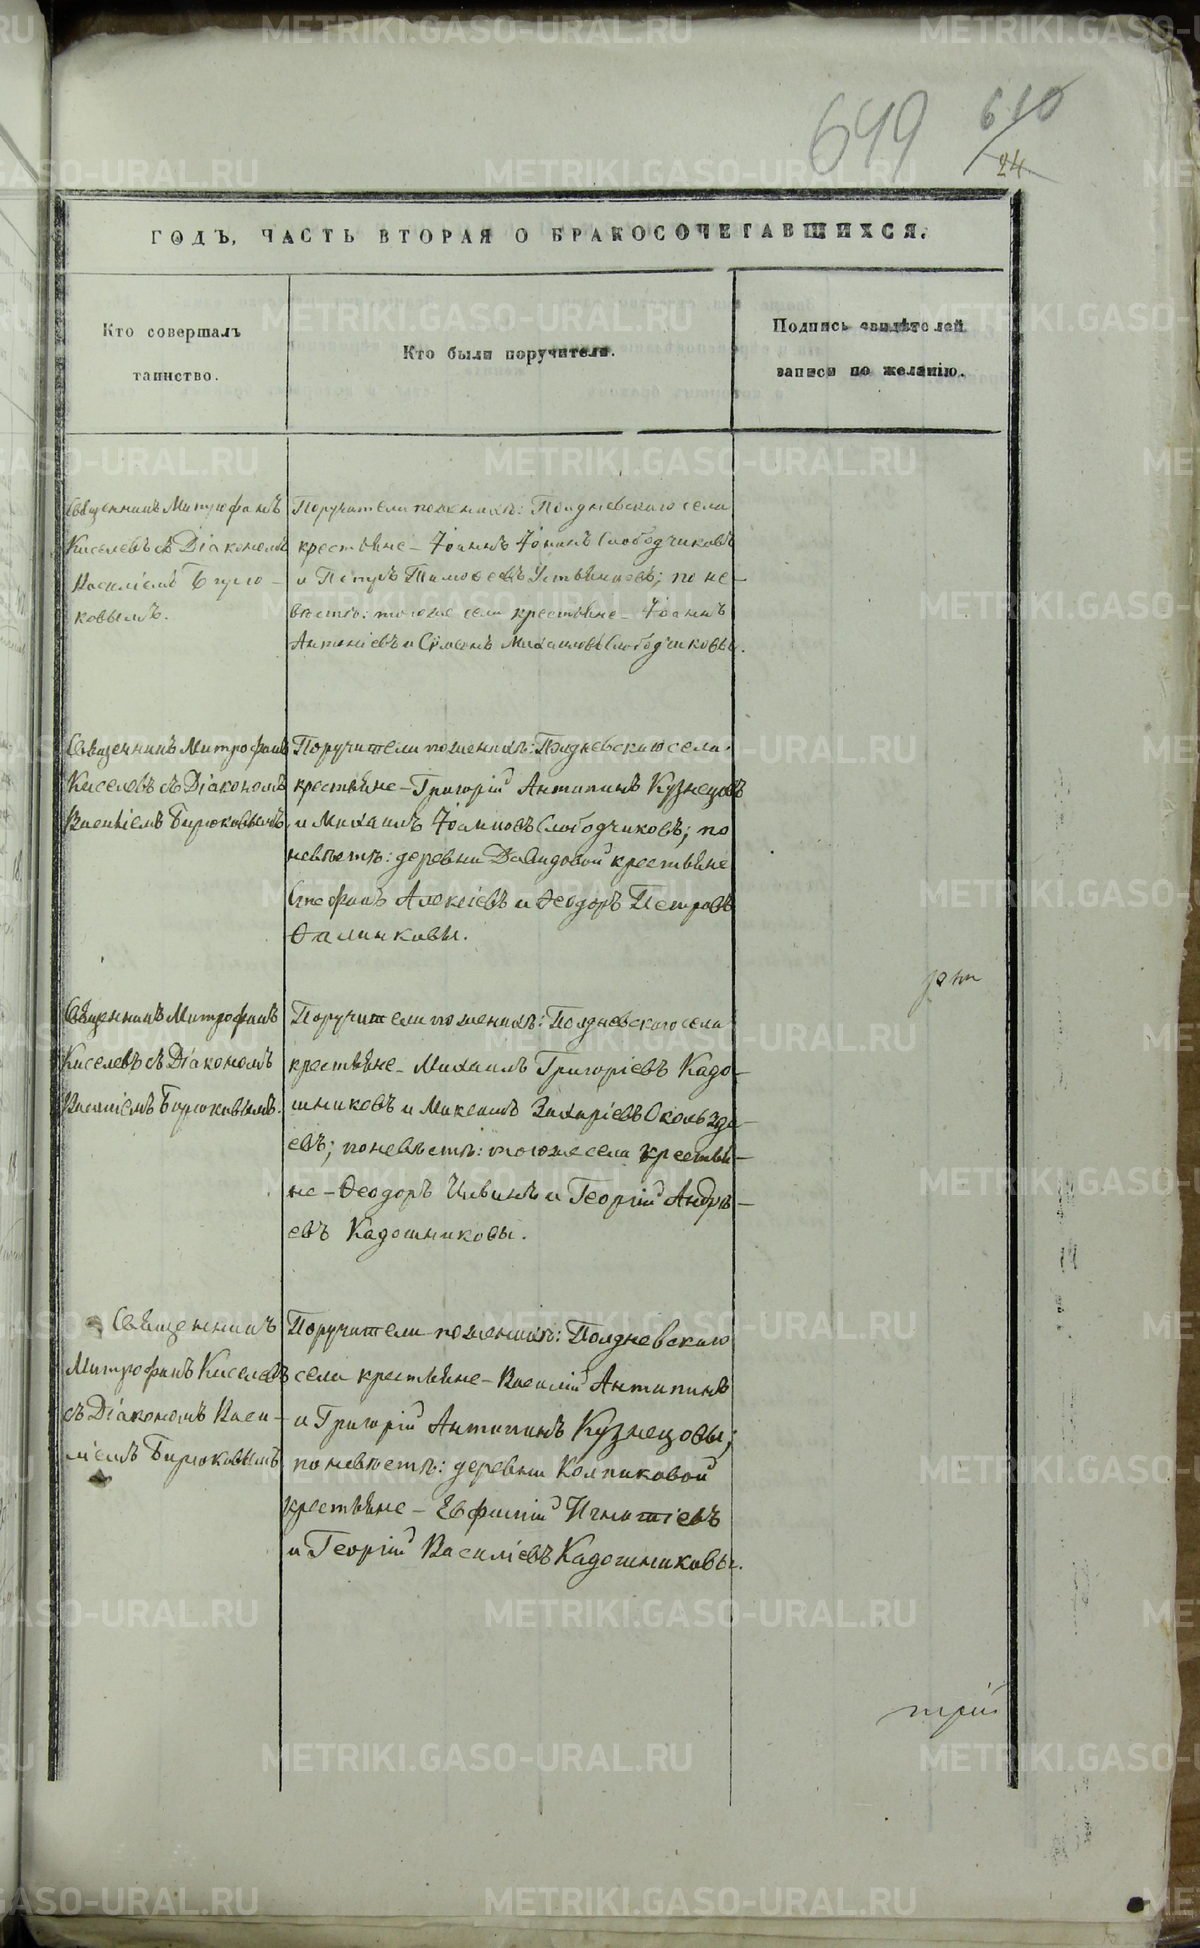 649 610
24
ГОДЪ, ЧАСТЬ ВТОРАЯ О БРАКОСОЧЕТАВШИХСЯ.
Кто совершалъ
таинство.
Кто были поручители.
Подпись свидѣтелей
записи по желанію.
Священникъ Митрофанъ
Киселевъ съ Діакономъ
Василіемъ Бирю-
ковымъ.
Поручители по женихѣ: Полдневскаго села
крестьяне - Іоаннъ Іоанновъ Слободчиковъ
и Петръ Тимоѳеевъ Устьянцевъ; по не-
вѣстѣ: того же села крестьяне - Іоаннъ
Антоніевъ и Сѵмеонъ Михаиловъ Слободчиковы.
Священникъ Митрофанъ
Киселевъ съ Діакономъ
Василіемъ Бирюковымъ.
Поручители по женихѣ: Полдневскаго села
крестьяне - Григорій Антипинъ Кузнецовъ
и Михаилъ Іоанновъ Слободчиковъ; по
невѣстѣ: деревни Давидовой крестьяне
Стефанъ Алексіевъ и Ѳеодоръ Петровъ
Ѳалинковы.
Священникъ Митрофанъ
Киселевъ съ Діакономъ
Василіемъ Бирюковымъ.
Поручители по женихѣ: Полдневскаго села
крестьяне - Михаилъ Григоріевъ Кадо-
шниковъ и Максимъ Захаріевъ
евъ; по невѣстѣ: того же села крестья-
не - Ѳеодоръ и Георгій Андре-
евъ Кадошниковы.
Священникъ
Митрофанъ Киселевъ
съ Діакономъ Васи-
ліемъ Бирюковымъ
Поручители по женихѣ: Полдневскаго
села крестьяне - Василій Антипинъ
и Григорій Антипинъ Кузнецовы;
по невѣстѣ: деревни Колпаковой
крестьяне - Евфимій Игнатіевъ
и Георгій Василіевъ Кадошниковы.
METRIKI.GASO-URAL.RU